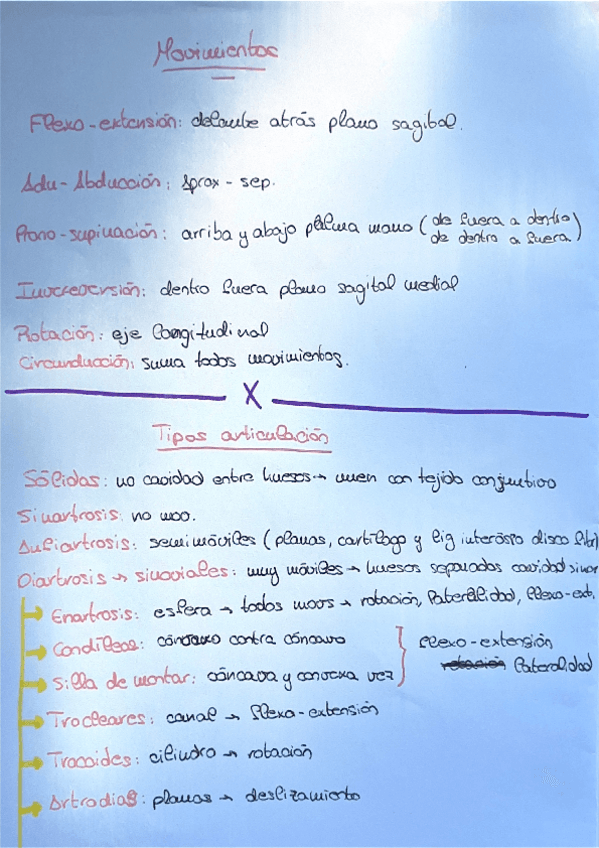 Movimientos
Flexo-extensión: delante atrás plano sagital.
Adu-Abducción: aprox - sep.
Prono-supinación: arriba y abajo palma mano (de fuera a dentro
de dentro a fuera)
dentro fuera plano sagital medial
Rotación: eje longitudinal
Circunducción: suma todos movimientos.
X
Tipos articulación
Sólidas: no cavidad entre huesos → unen con tejido conjuntivo
Sinartrosis: no mov.
Anfiartrosis: semimóviles (planas, cartílago y lig interóseo disco fibr
Diartrosis → sinoviales: muy móviles → huesos separados cavidad sinov
→ Enartrosis: esfera → todos movs → rotación, lateralidad, flexo-ext.
→ Condíleas: contra cóncavo
→ Silla de montar: cóncava y convexa vez
flexo-extensión
rotación lateralidad
→ Trocleares: canal → flexo-extensión
→ Trocoides: cilindro → rotación
→ Artrodias: planas → deslizamiento